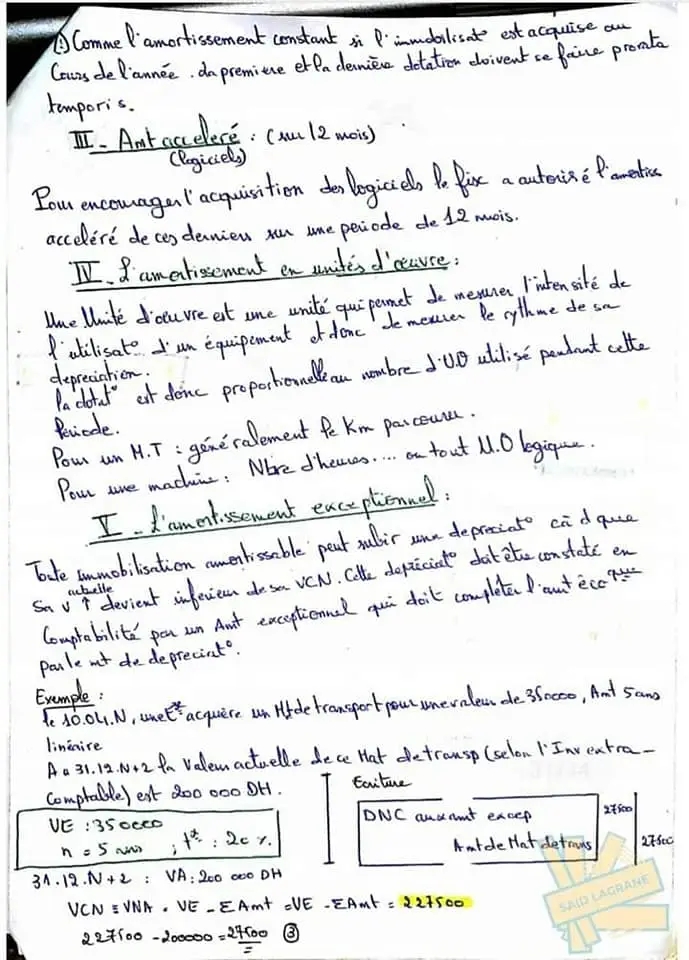 ① Comme l'amortissement constant si l'immobilisat° est acquise au
Cours de l'année. La première et la dernière dotation doivent se faire prorata
temporis.
III - Amt acceleré : (sur 12 mois)
(logiciels)
Pour encourager l'acquisition des logiciels le fisc a autorisé l'amortiss
acceléré de ces derniers sur une periode de 12 mois.
IV - L'amortissement en unités d'œuvre :
Une Unité d'œuvre est une unité qui permet de mesurer l'intensité de
l'utilisat° d'un équipement et donc de mesurer le rythme de sa
depreciation.
la dotat° est donc proportionnelle au nombre d'U.O utilisé pendant cette
Periode.
Pour un M.T : généralement le Km parcouru.
Pour une machine : Nbre d'heures.... ou tout U.O logique.
V - L'amortissement exceptionnel :
Toute immobilisation amortissable peut subir une depreciat° càd que
Sa v actuelle devient inferieur de sa VCN. Cette depréciat° doit être constaté en
Comptabilité par un Amt exceptionnel qui doit completer l'amt éco que
par le mt de depreciat°.
Exemple :
le 10.04.N, une Ese acquère un Mt de transport pour une valeur de 350000, Amt 5 ans
linéaire
A u 31.12.N+2 la Valeur actuelle de ce Mat de transp (selon l'Inv extra-
Comptable) est 200 000 DH.
Ecriture
VE : 350000
n = 5 ans ; tx : 20 %.
DNC aux amt excep 27500
Amt de Mat de trans 27500
31.12.N+2 : VA : 200 000 DH
VCN = VNA = VE - ΣAmt = VE - ΣAmt = 227500
227500 - 200000 = 27500 ③
SAID LAGRANE